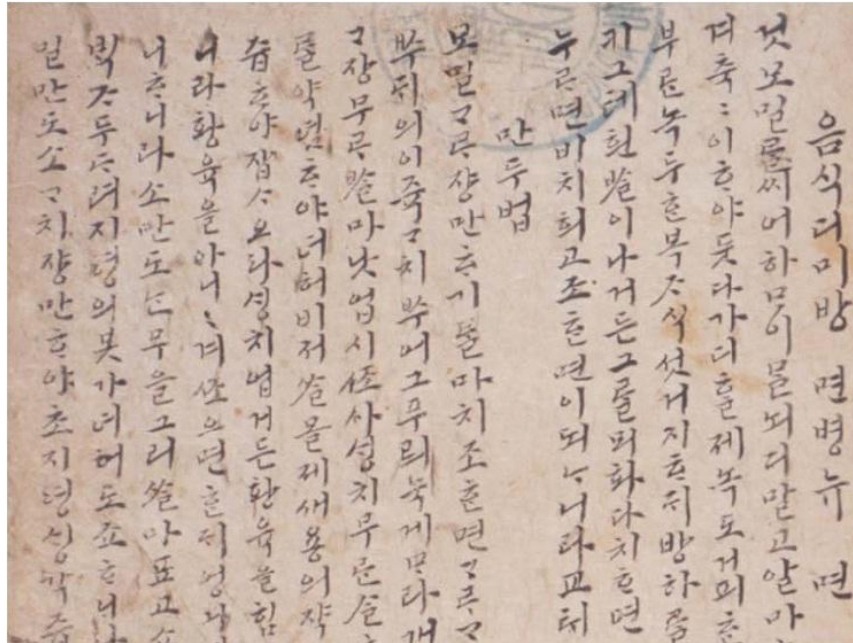 음식디미방 면병뉴 면
것모밀ᄅᆞᆯ씨어하뭉이믈뇌디말고알마
겨축축이ᄒᆞ야둣다가디흘제녹도거피ᄒᆞ
부ᄅᆞᆫ녹두ᄒᆞᆫ복ᄌᆞ식섯거지흐ᄃᆡ방하ᄅᆞᆯ
키그테흰ᄡᆞᆯ이나거든그ᄅᆞᆯ뫼화다치ᄒᆞ면
누르면비치희고조ᄒᆞᆫ면이되ᄂᆞ니라교ᄐᆡ
만두법
모밀ᄀᆞᄅᆞ쟝만ᄒᆞ기ᄅᆞᆯ마치조ᄒᆞᆫ면ᄀᆞᄅᆞᄀᆞ
쑤ᄃᆡ의이쥭ᄀᆞ치쑤어그푸릐눅게ᄆᆞ라
ᄀᆞ장무ᄅᆞᄡᆞᆯ마낫업시ᄶᅩ사ᄉᆡᆼ치무ᄅᆞᆫᄉᆞᆯ
ᄅᆞᆯ약념ᄒᆞ야녀허비저ᄉᆞᆯ믈제새용의쟉
즙ᄒᆞ야잡ᄉᆞ오라ᄉᆡᆼ치업거든황육을힘
니라황육을아니
니ᄒᆞ니라소만도ᄂᆞᆫ무을그리ᄡᆞᆯ마표고
ᄇᆡᆨᄌᆞ두ᄃᆞ려지령의봇가녀허도죠ᄒᆞ니
일만도소ᄀᆞ치쟝만ᄒᆞ야초지령ᄉᆡᆼ각즙